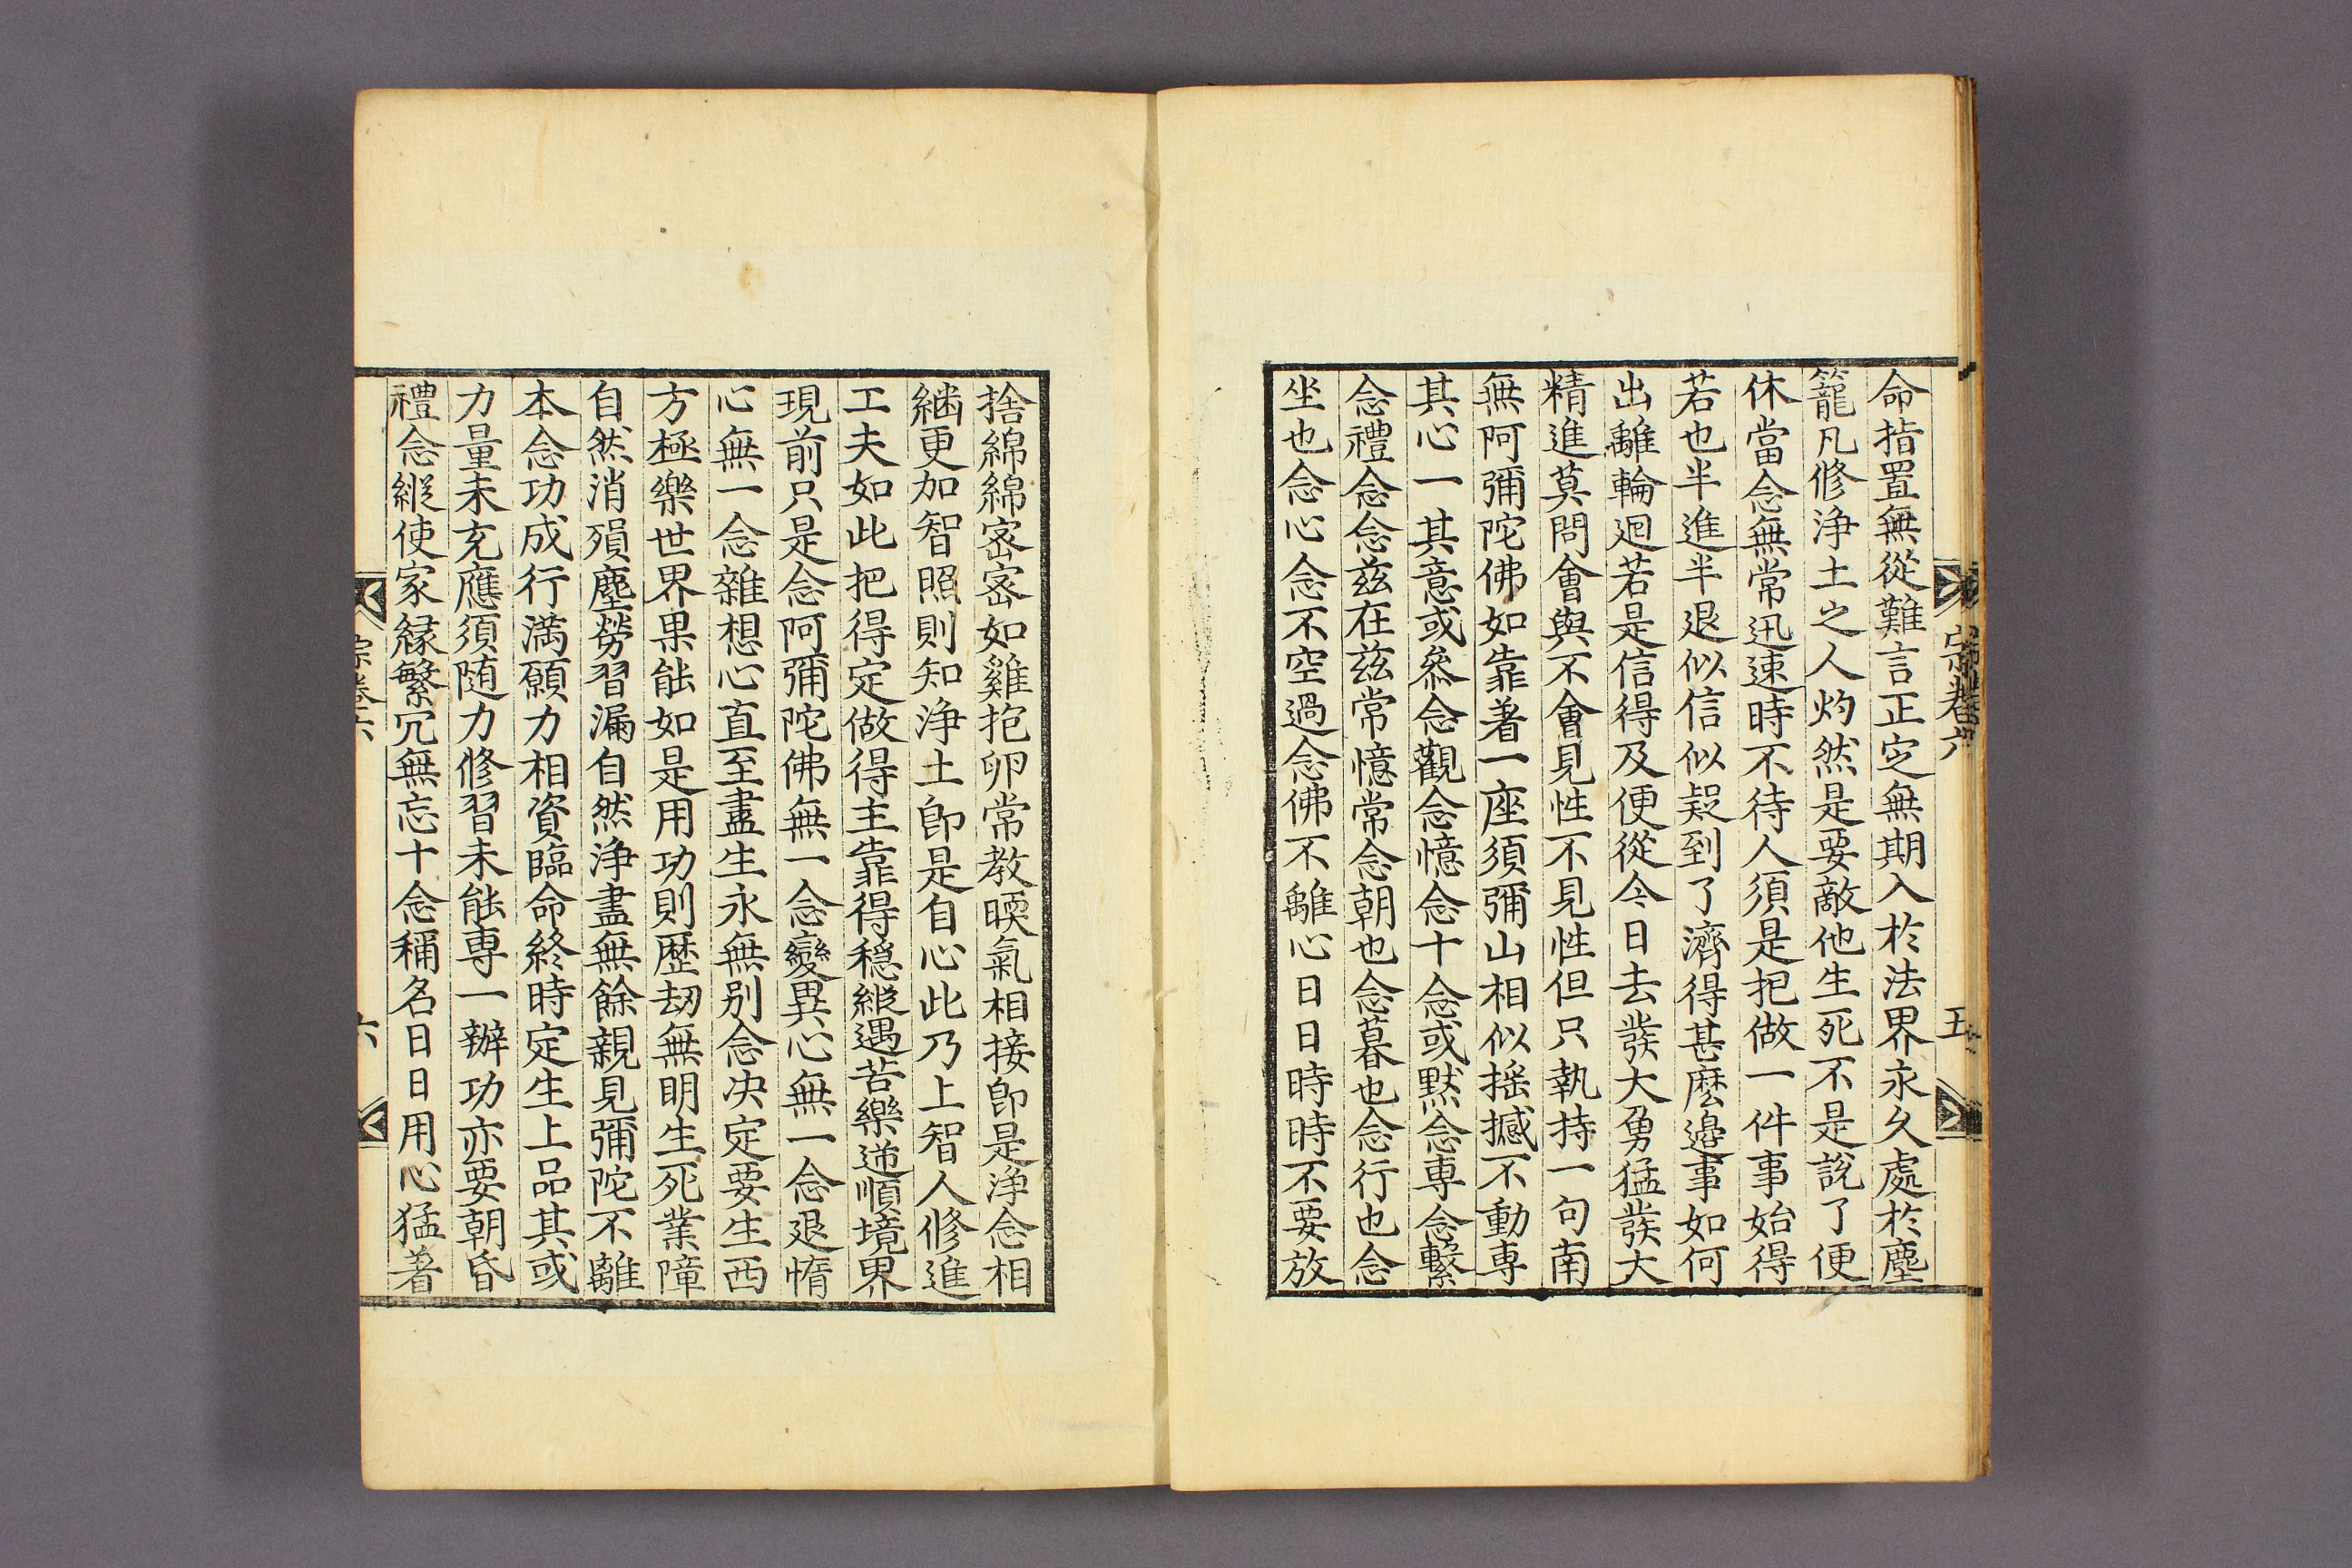 命指置無從難言正定無期入於法界永久處於塵
籠凡修淨土之人灼然是要敵他生死不是說了便
休當念無常迅速時不待人須是把做一件事始得
若也半進半退似信似疑到了濟得甚麽邊事如何
出離輪迴若是信得及便從今日去發大勇猛發大
精進莫問會與不會見性不見性但只執持一句南
無阿彌陀佛如靠著一座須彌山相似揺撼不動專
其心一其意或叅念觀念憶念十念或默念專念繫
念禮念念兹在兹常憶常念朝也念暮也念行也念
坐也念心念不空過念佛不離心日日時時不要放
宗卷六
五
捨綿綿宻宻如雞抱卵常教暖氣相接卽是淨念相
繼更加智照則知淨土卽是自心此乃上智人修進
工夫如此把得定做得主靠得穏縦遇苦樂逆順境界
現前只是念阿彌陀佛無一念變異心無一念退惰
心無一念雜想心直至盡生永無别念决定要生西
方極樂世界果能如是用功則歷刼無明生死業障
自然消殞塵勞習漏自然淨盡無餘親見彌陀不離
本念功成行満願力相資臨命終時定生上品其或
力量未充應須随力修習未能專一辦功亦要朝昏
禮念縦使家緣繁冗無忘十念稱名日日用心猛著
宗卷六
六